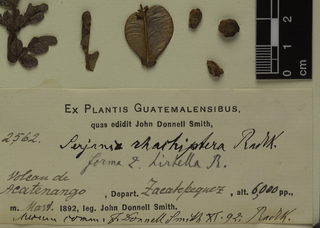 0 1 2
cm
Ex Plantis Guatemalensibus,
quas edidit John Donnell Smith,
2562. Serjania rhachiptera Radlk.
forma 2. hirtella R.
Volcan de
Acatenango, Depart. Zacatepequez, alt. 6000 pp.,
m. Mart. 1892, leg. John Donnell Smith.
comm. J. Donnell Smith XI. 92. Radlk.